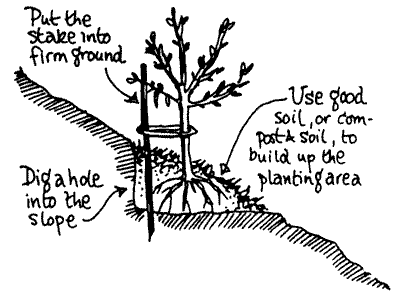 Put the
stake into
firm ground
Use good
soil, or com-
post & soil, to
build up the
planting area
Dig a hole
into the
slope